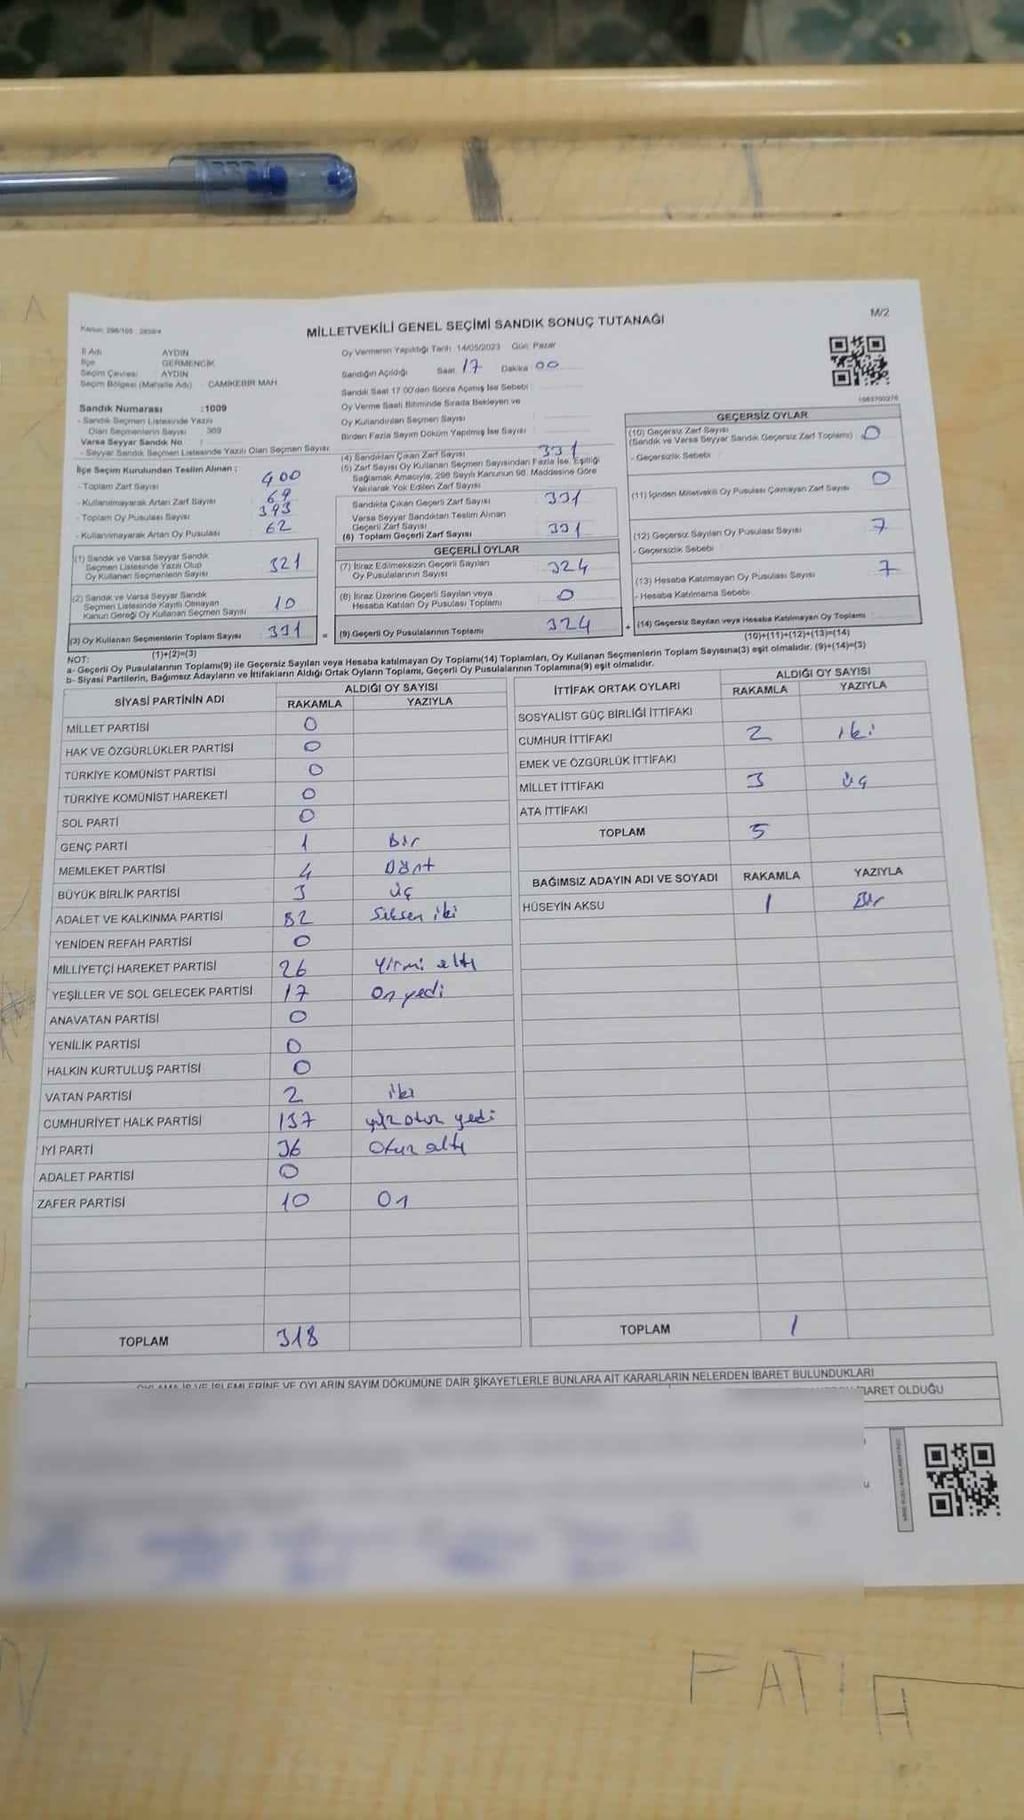 Kanun: 298/105 : 2839/4
M/2
MİLLETVEKİLİ GENEL SEÇİMİ SANDIK SONUÇ TUTANAĞI
İl Adı AYDIN
İlçe GERMENCİK
Seçim Çevresi AYDIN
Seçim Bölgesi (Mahalle Adı) CAMİKEBİR MAH.
Sandık Numarası :1009
- Sandık Seçmen Listesinde Yazılı
Olan Seçmenlerin Sayısı : 369
Varsa Seyyar Sandık No :
- Seyyar Sandık Seçmen Listesinde Yazılı Olan Seçmen Sayısı:
İlçe Seçim Kurulundan Teslim Alınan :
- Toplam Zarf Sayısı 400
- Kullanılmayarak Artan Zarf Sayısı 69
- Toplam Oy Pusulası Sayısı 393
- Kullanılmayarak Artan Oy Pusulası 62
(1) Sandık ve Varsa Seyyar Sandık
Seçmen Listesinde Yazılı Olup
Oy Kullanan Seçmenlerin Sayısı 321
(2) Sandık ve Varsa Seyyar Sandık
Seçmen Listesinde Kayıtlı Olmayan
Kanun Gereği Oy Kullanan Seçmen Sayısı 10
(3) Oy Kullanan Seçmenlerin Toplam Sayısı 331 =
(1)+(2)=(3)
Oy Vermenin Yapıldığı Tarih: 14/05/2023 Gün: Pazar
Sandığın Açıldığı Saat 17 Dakika 00
Sandık Saat 17:00'den Sonra Açılmış İse Sebebi :
Oy Verme Saati Bitiminde Sırada Bekleyen ve
Oy Kullandırılan Seçmen Sayısı
Birden Fazla Sayım Döküm Yapılmış İse Sayısı
(4) Sandıktan Çıkan Zarf Sayısı 331
(5) Zarf Sayısı Oy Kullanan Seçmen Sayısından Fazla İse, Eşitliği
Sağlamak Amacıyla, 298 Sayılı Kanunun 98. Maddesine Göre
Yakılarak Yok Edilen Zarf Sayısı
Sandıkta Çıkan Geçerli Zarf Sayısı 331
Varsa Seyyar Sandıktan Teslim Alınan
Geçerli Zarf Sayısı
(6) Toplam Geçerli Zarf Sayısı 331
GEÇERLİ OYLAR
(7) İtiraz Edilmeksizin Geçerli Sayılan
Oy Pusulalarının Sayısı 324
(8) İtiraz Üzerine Geçerli Sayılan veya
Hesaba Katılan Oy Pusulası Toplamı 0
(9) Geçerli Oy Pusulalarının Toplamı 324 +
GEÇERSİZ OYLAR
(10) Geçersiz Zarf Sayısı
(Sandık ve Varsa Seyyar Sandık Geçersiz Zarf Toplamı) 0
- Geçersizlik Sebebi
(11) İçinden Milletvekili Oy Pusulası Çıkmayan Zarf Sayısı 0
(12) Geçersiz Sayılan Oy Pusulası Sayısı 7
- Geçersizlik Sebebi
(13) Hesaba Katılmayan Oy Pusulası Sayısı 7
- Hesaba Katılmama Sebebi
(14) Geçersiz Sayılan veya Hesaba Katılmayan Oy Toplamı
(10)+(11)+(12)+(13)=(14)
NOT:
a- Geçerli Oy Pusulalarının Toplamı(9) ile Geçersiz Sayılan veya Hesaba katılmayan Oy Toplamı(14) Toplamları, Oy Kullanan Seçmenlerin Toplam Sayısına(3) eşit olmalıdır. (9)+(14)=(3)
b- Siyasi Partilerin, Bağımsız Adayların ve İttifakların Aldığı Ortak Oyların Toplamı, Geçerli Oy Pusulalarının Toplamına(9) eşit olmalıdır.
SİYASİ PARTİNİN ADI ALDIĞI OY SAYISI
RAKAMLA YAZIYLA
MİLLET PARTİSİ 0
HAK VE ÖZGÜRLÜKLER PARTİSİ 0
TÜRKİYE KOMÜNİST PARTİSİ 0
TÜRKİYE KOMÜNİST HAREKETİ 0
SOL PARTİ 0
GENÇ PARTİ 1 Bir
MEMLEKET PARTİSİ 4 Dört
BÜYÜK BİRLİK PARTİSİ 3 üç
ADALET VE KALKINMA PARTİSİ 82 Seksen iki
YENİDEN REFAH PARTİSİ 0
MİLLİYETÇİ HAREKET PARTİSİ 26 Yirmi altı
YEŞİLLER VE SOL GELECEK PARTİSİ 17 On yedi
ANAVATAN PARTİSİ 0
YENİLİK PARTİSİ 0
HALKIN KURTULUŞ PARTİSİ 0
VATAN PARTİSİ 2 iki
CUMHURİYET HALK PARTİSİ 137 yüz otuz yedi
İYİ PARTİ 36 Otuz altı
ADALET PARTİSİ 0
ZAFER PARTİSİ 10 On
TOPLAM 318
İTTİFAK ORTAK OYLARI ALDIĞI OY SAYISI
RAKAMLA YAZIYLA
SOSYALİST GÜÇ BİRLİĞİ İTTİFAKI
CUMHUR İTTİFAKI 2 iki
EMEK VE ÖZGÜRLÜK İTTİFAKI
MİLLET İTTİFAKI 3 üç
ATA İTTİFAKI
TOPLAM 5
BAĞIMSIZ ADAYIN ADI VE SOYADI RAKAMLA YAZIYLA
HÜSEYİN AKSU 1 Bir
TOPLAM 1
OYLAMA İŞ VE İŞLEMLERİNE VE OYLARIN SAYIM DÖKÜMÜNE DAİR ŞİKAYETLERLE BUNLARA AİT KARARLARIN NELERDEN İBARET BULUNDUKLARI
İBARET OLDUĞU
FATIH